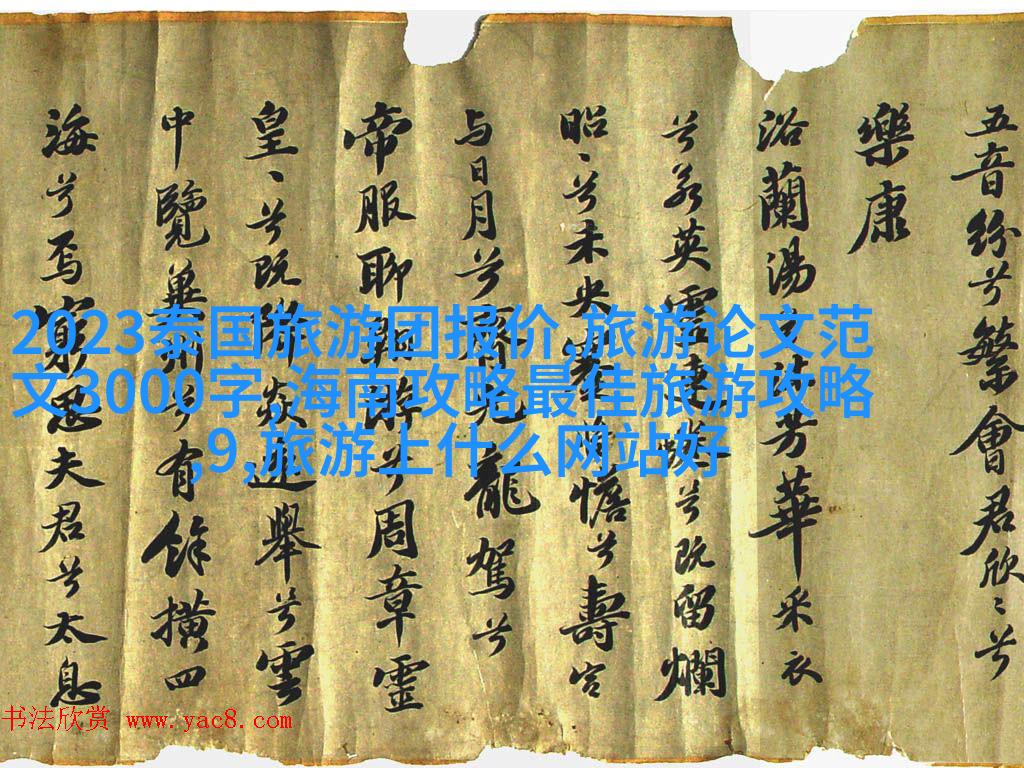 五音紛兮繁會君欣〻兮
樂康
浴蘭湯兮沐芳華采衣
兮若英靈連蜷兮既留爛
昭〻兮未央蹇將憺兮壽宮
与日月兮齊光龍駕兮
帝服聊翱游兮周章靈
皇〻兮既降猋遠舉兮雲
中覽冀州兮有餘橫四
海兮焉窮思夫君兮太息
2023泰国旅游团报价,旅游论文范
文3000字,海南攻略最佳旅游攻略
,9,旅游上什么网站好
书法欣赏 www.yac8.com